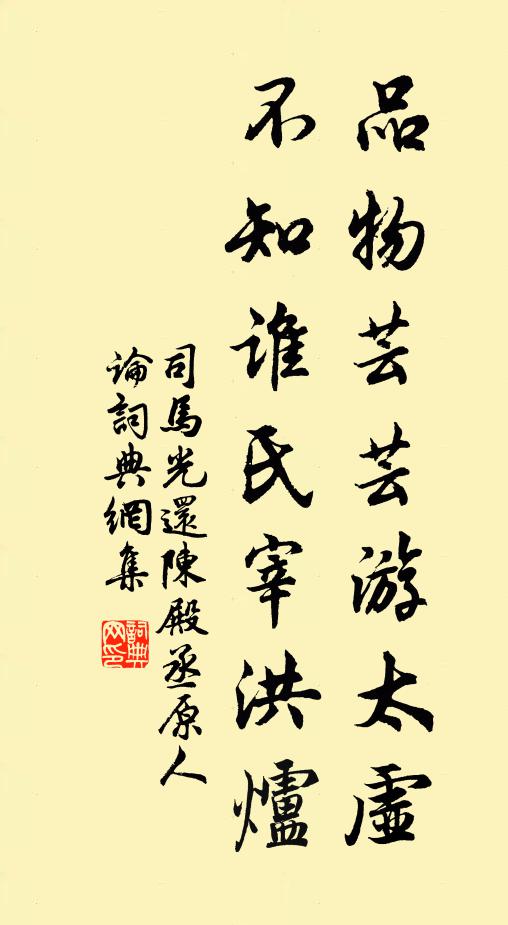 品物芸芸游太虛
不知誰氏宰洪爐
司馬光還陳殿丞原人
論詞典網集
詞典網印